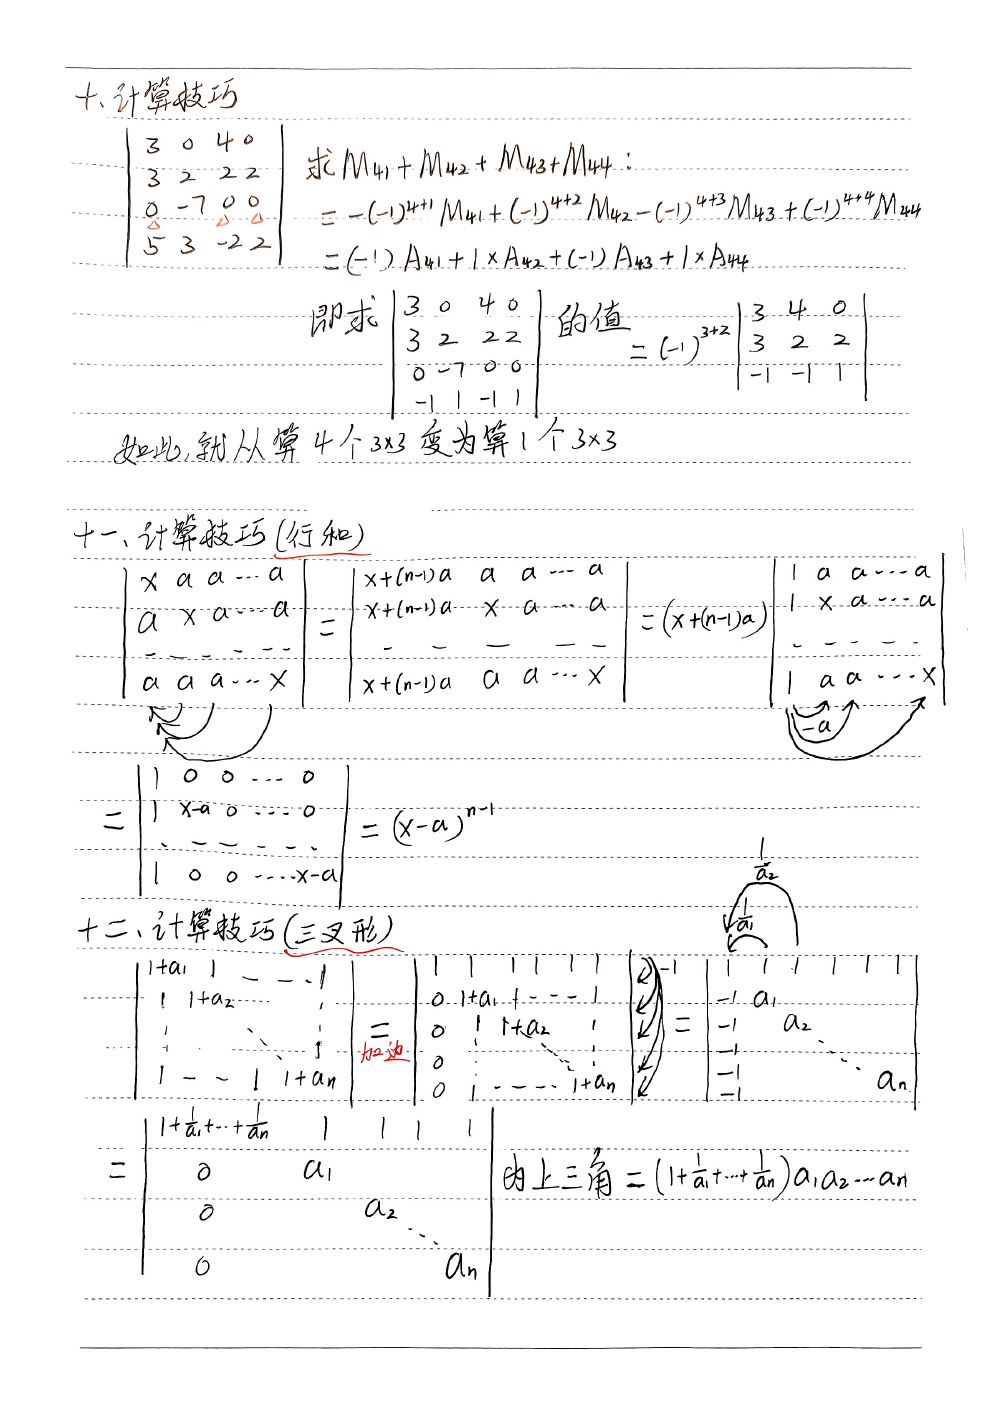 十、计算技巧
| 3 0 4 0 |
| 3 2 2 2 |
| 0 -7 0 0 |
| 5 3 -2 2 |
求M₄₁+M₄₂+M₄₃+M₄₄:
=-(-1)⁴⁺¹M₄₁+(-1)⁴⁺²M₄₂-(-1)⁴⁺³M₄₃+(-1)⁴⁺⁴M₄₄
=(-1)A₄₁+1×A₄₂+(-1)A₄₃+1×A₄₄
即求
| 3 0 4 0 |
| 3 2 2 2 |
| 0 -7 0 0 |
| -1 1 -1 1 |
的值
=(-1)³⁺²
| 3 4 0 |
| 3 2 2 |
| -1 -1 1 |
如此,就从算4个3×3变为算1个3×3
十一、计算技巧(行和)
| x a a ... a |
| a x a ... a |
| - - - - - - |
| a a a ... x |
=
| x+(n-1)a a a ... a |
| x+(n-1)a x a ... a |
| - - - - - |
| x+(n-1)a a a ... x |
=(x+(n-1)a)
| 1 a a ... a |
| 1 x a ... a |
| - - - - - |
| 1 a a ... x |
-a
=
| 1 0 0 ... 0 |
| 1 x-a 0 ... 0 |
| - - - - - |
| 1 0 0 ... x-a |
=(x-a)ⁿ⁻¹
十二、计算技巧(三叉形)
| 1+a₁ 1 - - - 1 |
| 1 1+a₂ |
| 1 - - 1 1+aₙ |
=
加边
| 1 1 1 1 1 1 |
| 0 1+a₁ 1 - - - 1 |
| 0 1 1+a₂ |
| 0 |
| 0 1 - - - - 1+aₙ |
-1
=
1/a₂
1/a₁
| 1 1 1 1 1 1 |
| -1 a₁ |
| -1 a₂ |
| -1 |
| -1 aₙ |
| -1 |
=
| 1+1/a₁+...+1/aₙ 1 1 1 1 |
| 0 a₁ |
| 0 a₂ |
| 0 aₙ |
的上三角=(1+1/a₁+...+1/aₙ)a₁a₂...aₙ